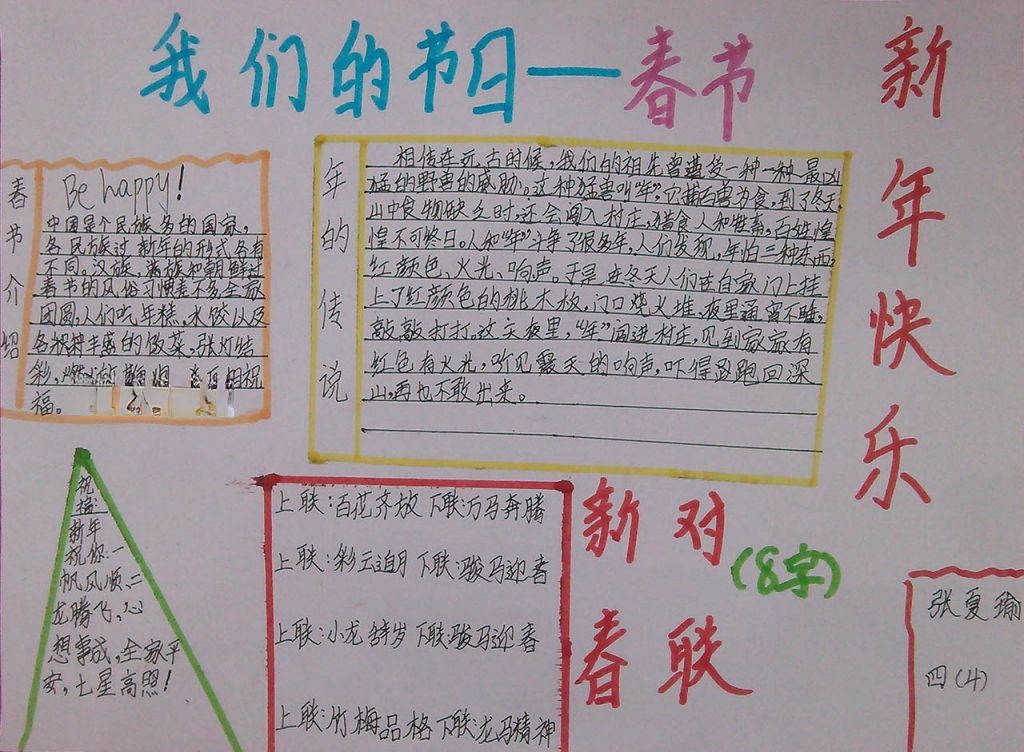 我们的节日——春节
新年快乐
春节介绍
Be happy!
中国是个民族多的国家,
各民族过新年的形式各有
不同。汉族,满族和朝鲜过
春节的风俗习惯差不多全家
团圆,人们吃年糕,水饺以及
各种丰盛的饭菜,张灯结
彩,
祝
福。
年的传说
相传在远古时候,我们的祖先曾遭受一种一种最凶
猛的野兽的威胁。这种猛兽叫“年”,它捕百兽为食,到了冬天,
山中食物缺乏时,还会闯入村庄,猎食人和牲畜,百姓惶
惶不可终日。人和“年”斗争了很多年,人们发现,年怕三种东西,
红颜色、火光、响声。于是在冬天人们在自家门上挂
上了红颜色的桃木板,门口烧火堆,夜里通宵不睡,
敲敲打打。这天夜里,“年”闯进村庄,见到家家有
红色有火光,听见震天的响声,吓得跑回深
山,再也不敢出来。
祝
福:
新年
祝你:一
帆风顺,二
龙腾飞,心
想事成,全家平
安,七星高照!
上联:百花齐放 下联:万马奔腾
上联:彩云追月 下联:骏马迎春
上联:小龙辞岁 下联:骏马迎春
上联:竹梅品格 下联:龙马精神
新对
(8字)
春联
张夏瑜
四(4)